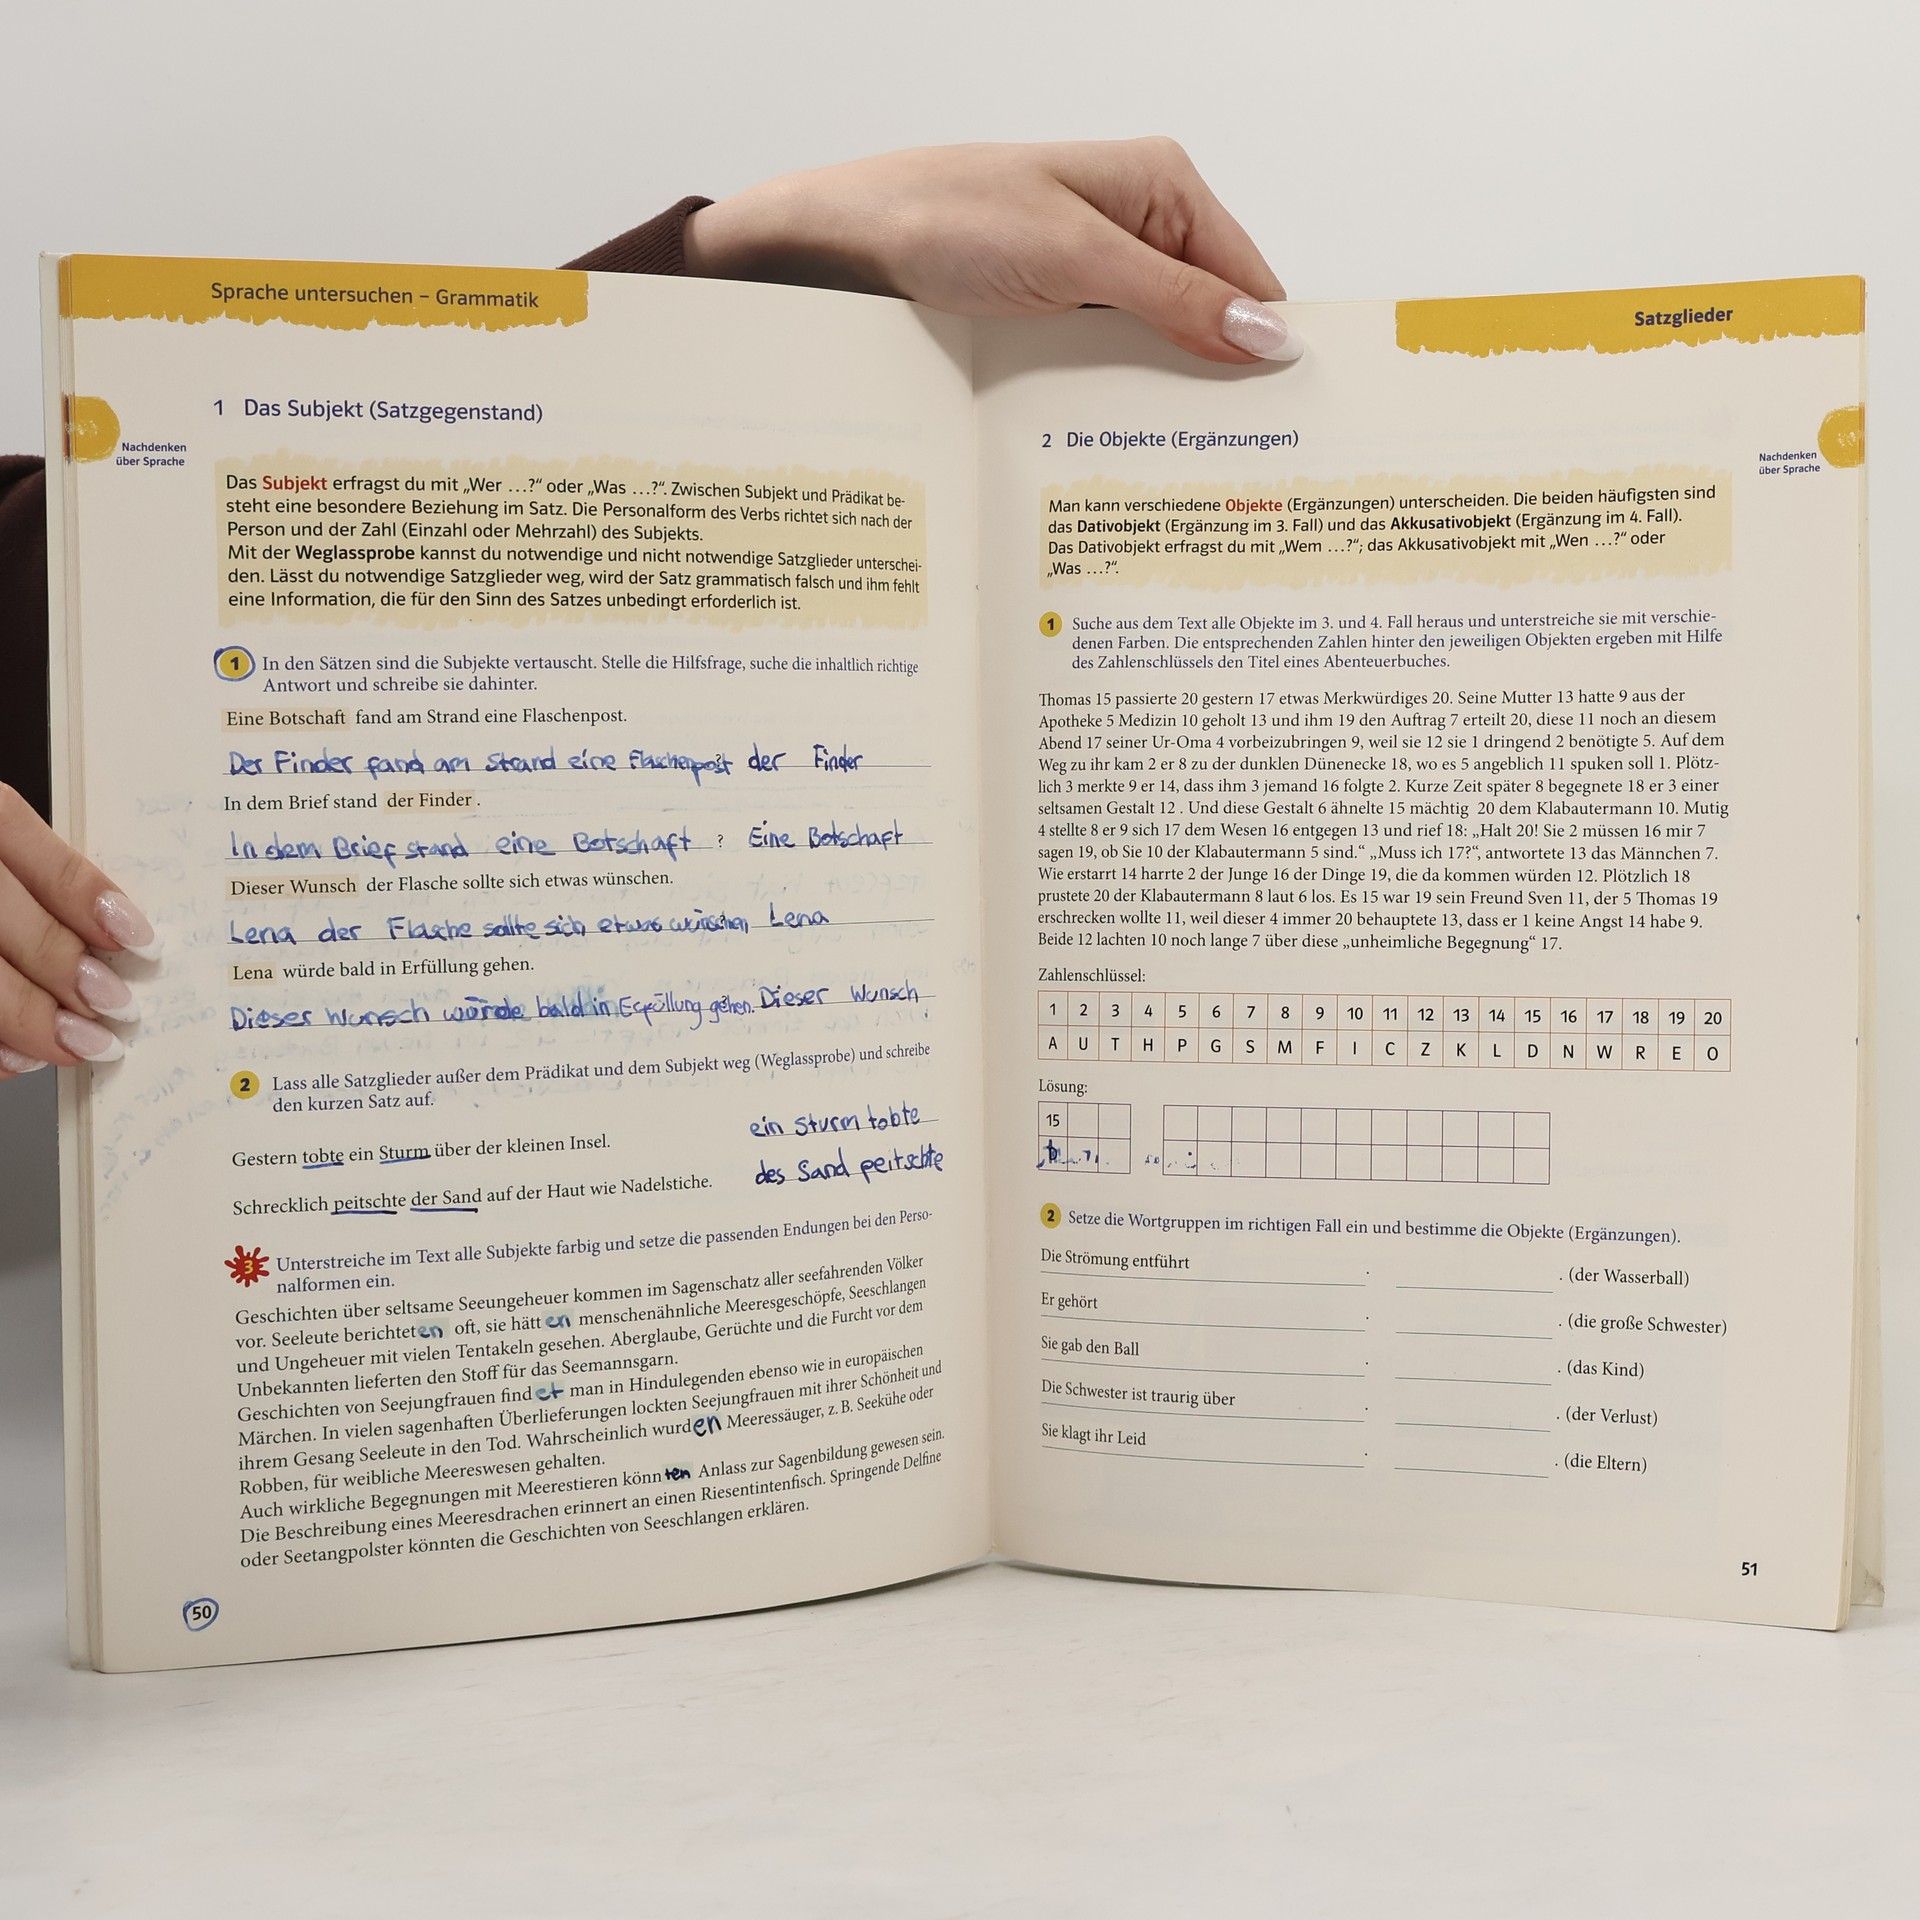 Sprache untersuchen – Grammatik
Nachdenken
über Sprache
1 Das Subjekt (Satzgegenstand)
Das Subjekt erfragst du mit „Wer …?“ oder „Was …?“. Zwischen Subjekt und Prädikat be-
steht eine besondere Beziehung im Satz. Die Personalform des Verbs richtet sich nach der
Person und der Zahl (Einzahl oder Mehrzahl) des Subjekts.
Mit der Weglassprobe kannst du notwendige und nicht notwendige Satzglieder unterschei-
den. Lässt du notwendige Satzglieder weg, wird der Satz grammatisch falsch und ihm fehlt
eine Information, die für den Sinn des Satzes unbedingt erforderlich ist.
1 In den Sätzen sind die Subjekte vertauscht. Stelle die Hilfsfrage, suche die inhaltlich richtige
Antwort und schreibe sie dahinter.
Eine Botschaft fand am Strand eine Flaschenpost.
Der Finder fand am Strand eine Flaschenpost? der Finder
In dem Brief stand der Finder.
In dem Brief stand eine Botschaft ? Eine Botschaft
Dieser Wunsch der Flasche sollte sich etwas wünschen.
Lena der Flasche sollte sich etwas wünschen, Lena
Lena würde bald in Erfüllung gehen.
Dieser Wunsch würde bald in Erfüllung gehen. Dieser Wunsch
2 Lass alle Satzglieder außer dem Prädikat und dem Subjekt weg (Weglassprobe) und schreibe
den kurzen Satz auf.
Gestern tobte ein Sturm über der kleinen Insel. ein Sturm tobte
Schrecklich peitschte der Sand auf der Haut wie Nadelstiche. des Sand peitschte
3 Unterstreiche im Text alle Subjekte farbig und setze die passenden Endungen bei den Perso-
nalformen ein.
Geschichten über seltsame Seeungeheuer kommen im Sagenschatz aller seefahrenden Völker
vor. Seeleute berichteten oft, sie hätten menschenähnliche Meeresgeschöpfe, Seeschlangen
und Ungeheuer mit vielen Tentakeln gesehen. Aberglaube, Gerüchte und die Furcht vor dem
Unbekannten lieferten den Stoff für das Seemannsgarn.
Geschichten von Seejungfrauen findet man in Hindulegenden ebenso wie in europäischen
Märchen. In vielen sagenhaften Überlieferungen lockten Seejungfrauen mit ihrer Schönheit und
ihrem Gesang Seeleute in den Tod. Wahrscheinlich wurden Meeressäuger, z. B. Seekühe oder
Robben, für weibliche Meereswesen gehalten.
Auch wirkliche Begegnungen mit Meerestieren könnten Anlass zur Sagenbildung gewesen sein.
Die Beschreibung eines Meeresdrachen erinnert an einen Riesentintenfisch. Springende Delfine
oder Seetangpolster könnten die Geschichten von Seeschlangen erklären.
50
Satzglieder
Nachdenken
über Sprache
2 Die Objekte (Ergänzungen)
Man kann verschiedene Objekte (Ergänzungen) unterscheiden. Die beiden häufigsten sind
das Dativobjekt (Ergänzung im 3. Fall) und das Akkusativobjekt (Ergänzung im 4. Fall).
Das Dativobjekt erfragst du mit „Wem …?“; das Akkusativobjekt mit „Wen …?“ oder
„Was …?“.
1 Suche aus dem Text alle Objekte im 3. und 4. Fall heraus und unterstreiche sie mit verschie-
denen Farben. Die entsprechenden Zahlen hinter den jeweiligen Objekten ergeben mit Hilfe
des Zahlenschlüssels den Titel eines Abenteuerbuches.
Thomas 15 passierte 20 gestern 17 etwas Merkwürdiges 20. Seine Mutter 13 hatte 9 aus der
Apotheke 5 Medizin 10 geholt 13 und ihm 19 den Auftrag 7 erteilt 20, diese 11 noch an diesem
Abend 17 seiner Ur-Oma 4 vorbeizubringen 9, weil sie 12 sie 1 dringend 2 benötigte 5. Auf dem
Weg zu ihr kam 2 er 8 zu der dunklen Dünenecke 18, wo es 5 angeblich 11 spuken soll 1. Plötz-
lich 3 merkte 9 er 14, dass ihm 3 jemand 16 folgte 2. Kurze Zeit später 8 begegnete 18 er 3 einer
seltsamen Gestalt 12 . Und diese Gestalt 6 ähnelte 15 mächtig 20 dem Klabautermann 10. Mutig
4 stellte 8 er 9 sich 17 dem Wesen 16 entgegen 13 und rief 18: „Halt 20! Sie 2 müssen 16 mir 7
sagen 19, ob Sie 10 der Klabautermann 5 sind.“ „Muss ich 17?“, antwortete 13 das Männchen 7.
Wie erstarrt 14 harrte 2 der Junge 16 der Dinge 19, die da kommen würden 12. Plötzlich 18
prustete 20 der Klabautermann 8 laut 6 los. Es 15 war 19 sein Freund Sven 11, der 5 Thomas 19
erschrecken wollte 11, weil dieser 4 immer 20 behauptete 13, dass er 1 keine Angst 14 habe 9.
Beide 12 lachten 10 noch lange 7 über diese „unheimliche Begegnung“ 17.
Zahlenschlüssel:
1 2 3 4 5 6 7 8 9 10 11 12 13 14 15 16 17 18 19 20
A U T H P G S M F I C Z K L D N W R E O
Lösung:
15
2 Setze die Wortgruppen im richtigen Fall ein und bestimme die Objekte (Ergänzungen).
Die Strömung entführt . . (der Wasserball)
Er gehört . . (die große Schwester)
Sie gab den Ball . . (das Kind)
Die Schwester ist traurig über . . (der Verlust)
Sie klagt ihr Leid . . (die Eltern)
51